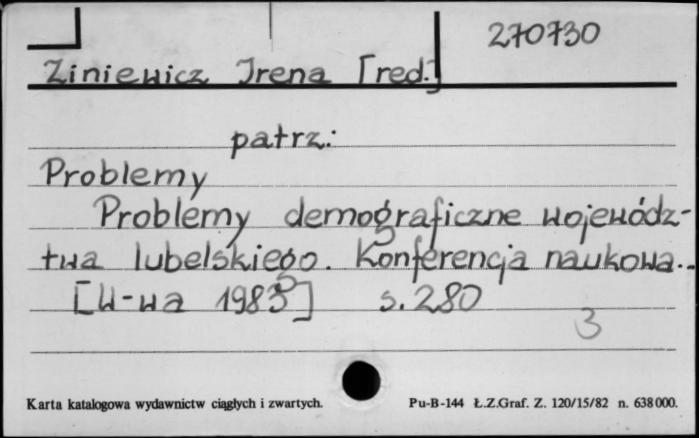 270730
Ziniewicz Irena [red.]
patrz:
Problemy
Problemy demograficzne wojewódz-
twa lubelskiego. Konferencja naukowa..
[W-wa 1983] s. 280
3
Karta katalogowa wydawnictw ciągłych i zwartych. Pu-B-144 Ł.Z.Graf. Z. 120/15/82 n. 638000.